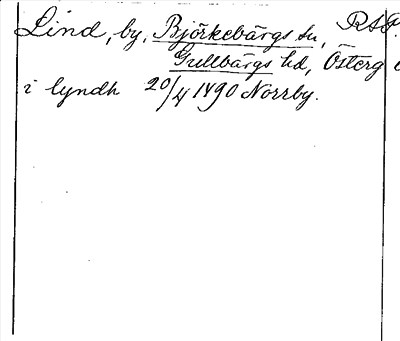 Lind, by, Björkebärgs su, RSG.
Gullbärgs hd, Österg
i lyndh 20/4 1490 Norrby.